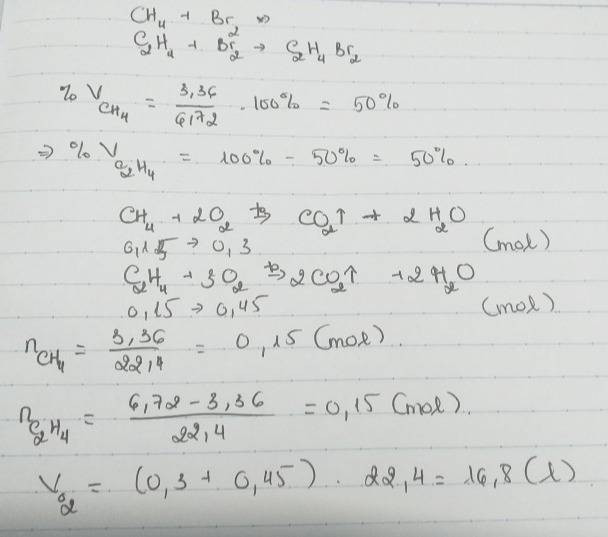 CH₄ + Br₂ ⇏
C₂H₄ + Br₂ → C₂H₄Br₂
% V_CH₄ = 3,36/6,72 . 100% = 50%
⇒ % V_C₂H₄ = 100% - 50% = 50%.
CH₄ + 2O₂ →(t°) CO₂↑ + 2H₂O
0,15 → 0,3 (mol)
C₂H₄ + 3O₂ →(t°) 2CO₂↑ + 2H₂O
0,15 → 0,45 (mol)
n_CH₄ = 3,36/22,4 = 0,15 (mol).
n_C₂H₄ = (6,72 - 3,36)/22,4 = 0,15 (mol).
V_O₂ = (0,3 + 0,45) . 22,4 = 16,8 (l)